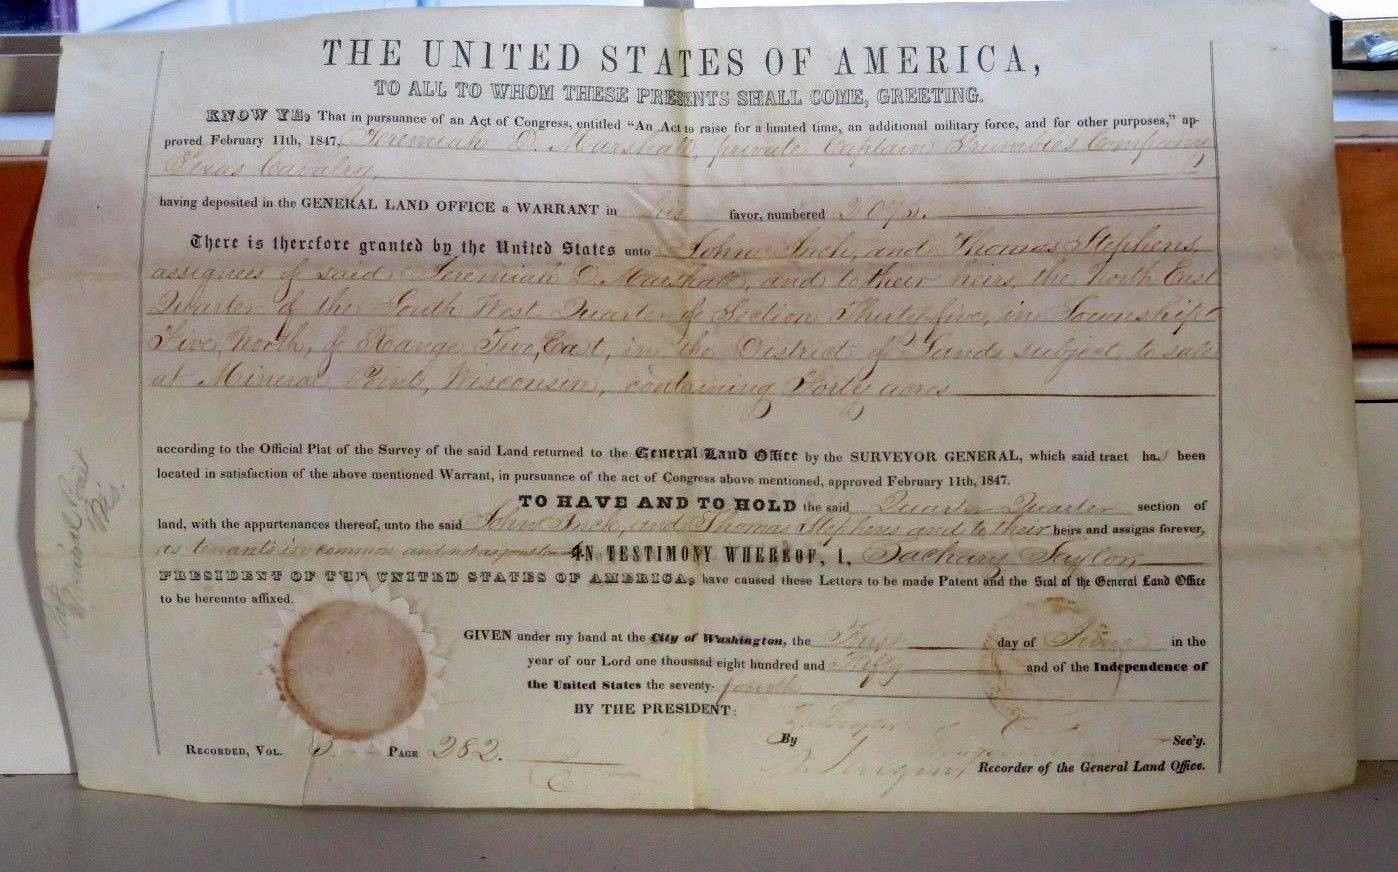 THE UNITED STATES OF AMERICA,
TO ALL TO WHOM THESE PRESENTS SHALL COME, GREETING.
KNOW YE, That in pursuance of an Act of Congress, entitled "An Act to raise for a limited time, an additional military force, and for other purposes," ap-
proved February 11th, 1847, Jeremiah D. Marshall, private Captain Company
Texas Cavalry,
having deposited in the GENERAL LAND OFFICE a WARRANT in his favor, numbered
There is therefore granted by the United States unto John Inch, and Thomas Stephens,
assignees of said Jeremiah D. Marshall, and to their heirs, the North East
Quarter of the South West Quarter of Section Thirty five, in Township
Five, North, of Range Five, East, in the District of Lands subject to sale
at Mineral Point, Wisconsin, containing Forty acres
according to the Official Plat of the Survey of the said Land returned to the General Land Office by the SURVEYOR GENERAL, which said tract has been
located in satisfaction of the above mentioned Warrant, in pursuance of the act of Congress above mentioned, approved February 11th, 1847.
TO HAVE AND TO HOLD the said Quarter Quarter section of
land, with the appurtenances thereof, unto the said John Inch, and Thomas Stephens and to their heirs and assigns forever,
as tenants in common and not as joint IN TESTIMONY WHEREOF, I, Zachary Taylor
PRESIDENT OF THE UNITED STATES OF AMERICA, have caused these Letters to be made Patent and the Seal of the General Land Office
to be hereunto affixed.
GIVEN under my hand at the City of Washington, the First day of in the
year of our Lord one thousand eight hundred and Fifty and of the Independence of
the United States the seventy-fourth
BY THE PRESIDENT: Z. Taylor
By Sec'y.
Recorder of the General Land Office.
RECORDED, VOL. 5 PAGE 282.
Mineral Point
Wis.